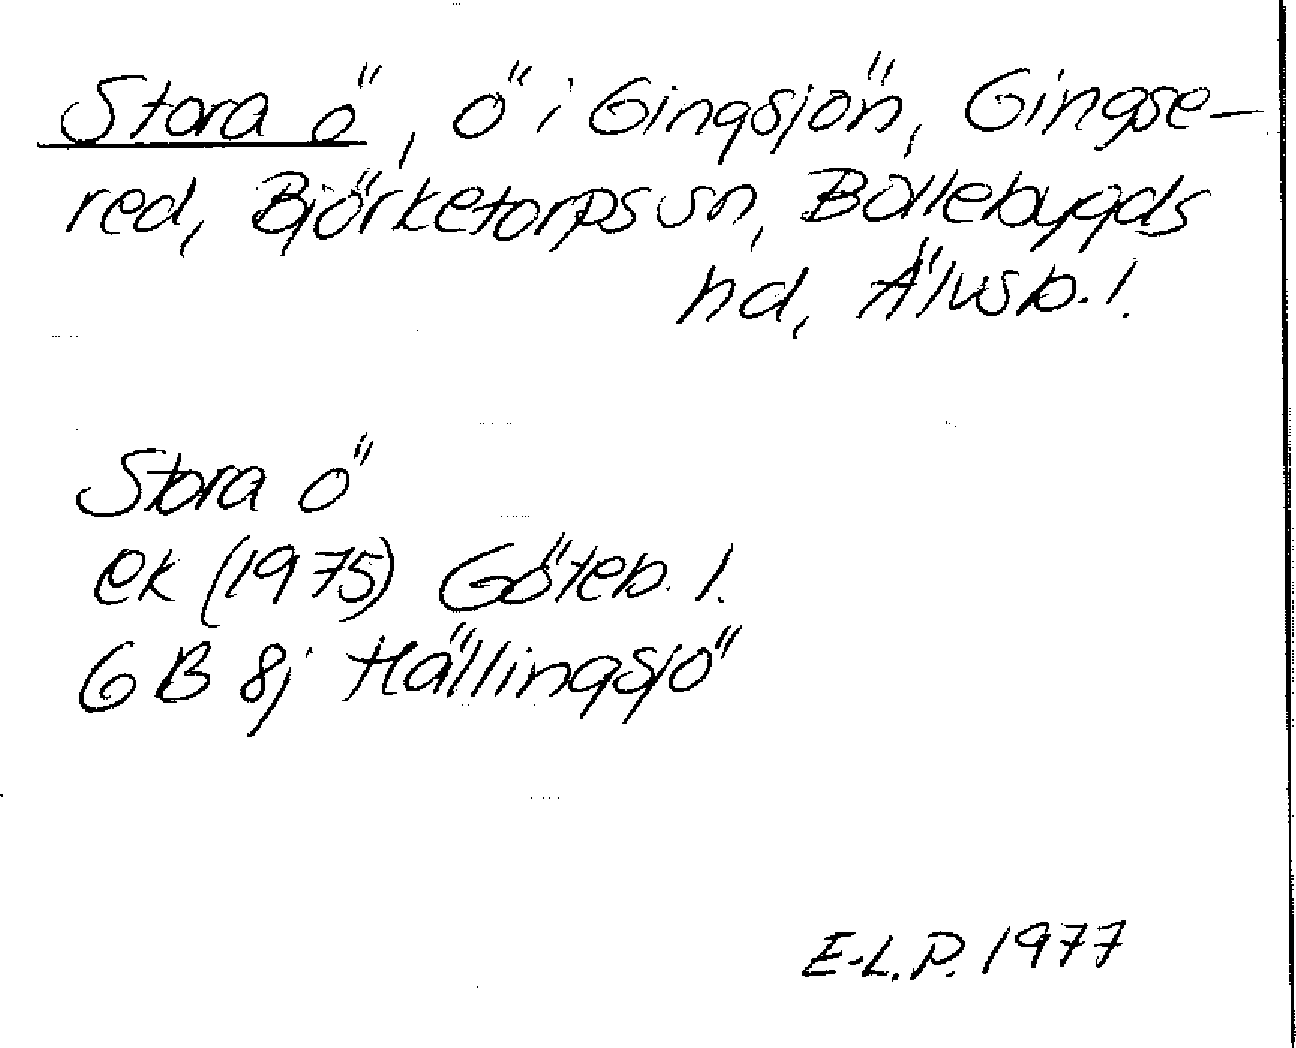 Stora ö, ö i Gingsjön, Gingse-
red, Björketorps sn, Bollebygds
hd, Älvsb. l.
Stora ö
ek (1975) Göteb. l.
6 B 8j Hällingsjö
E-L.P. 1977